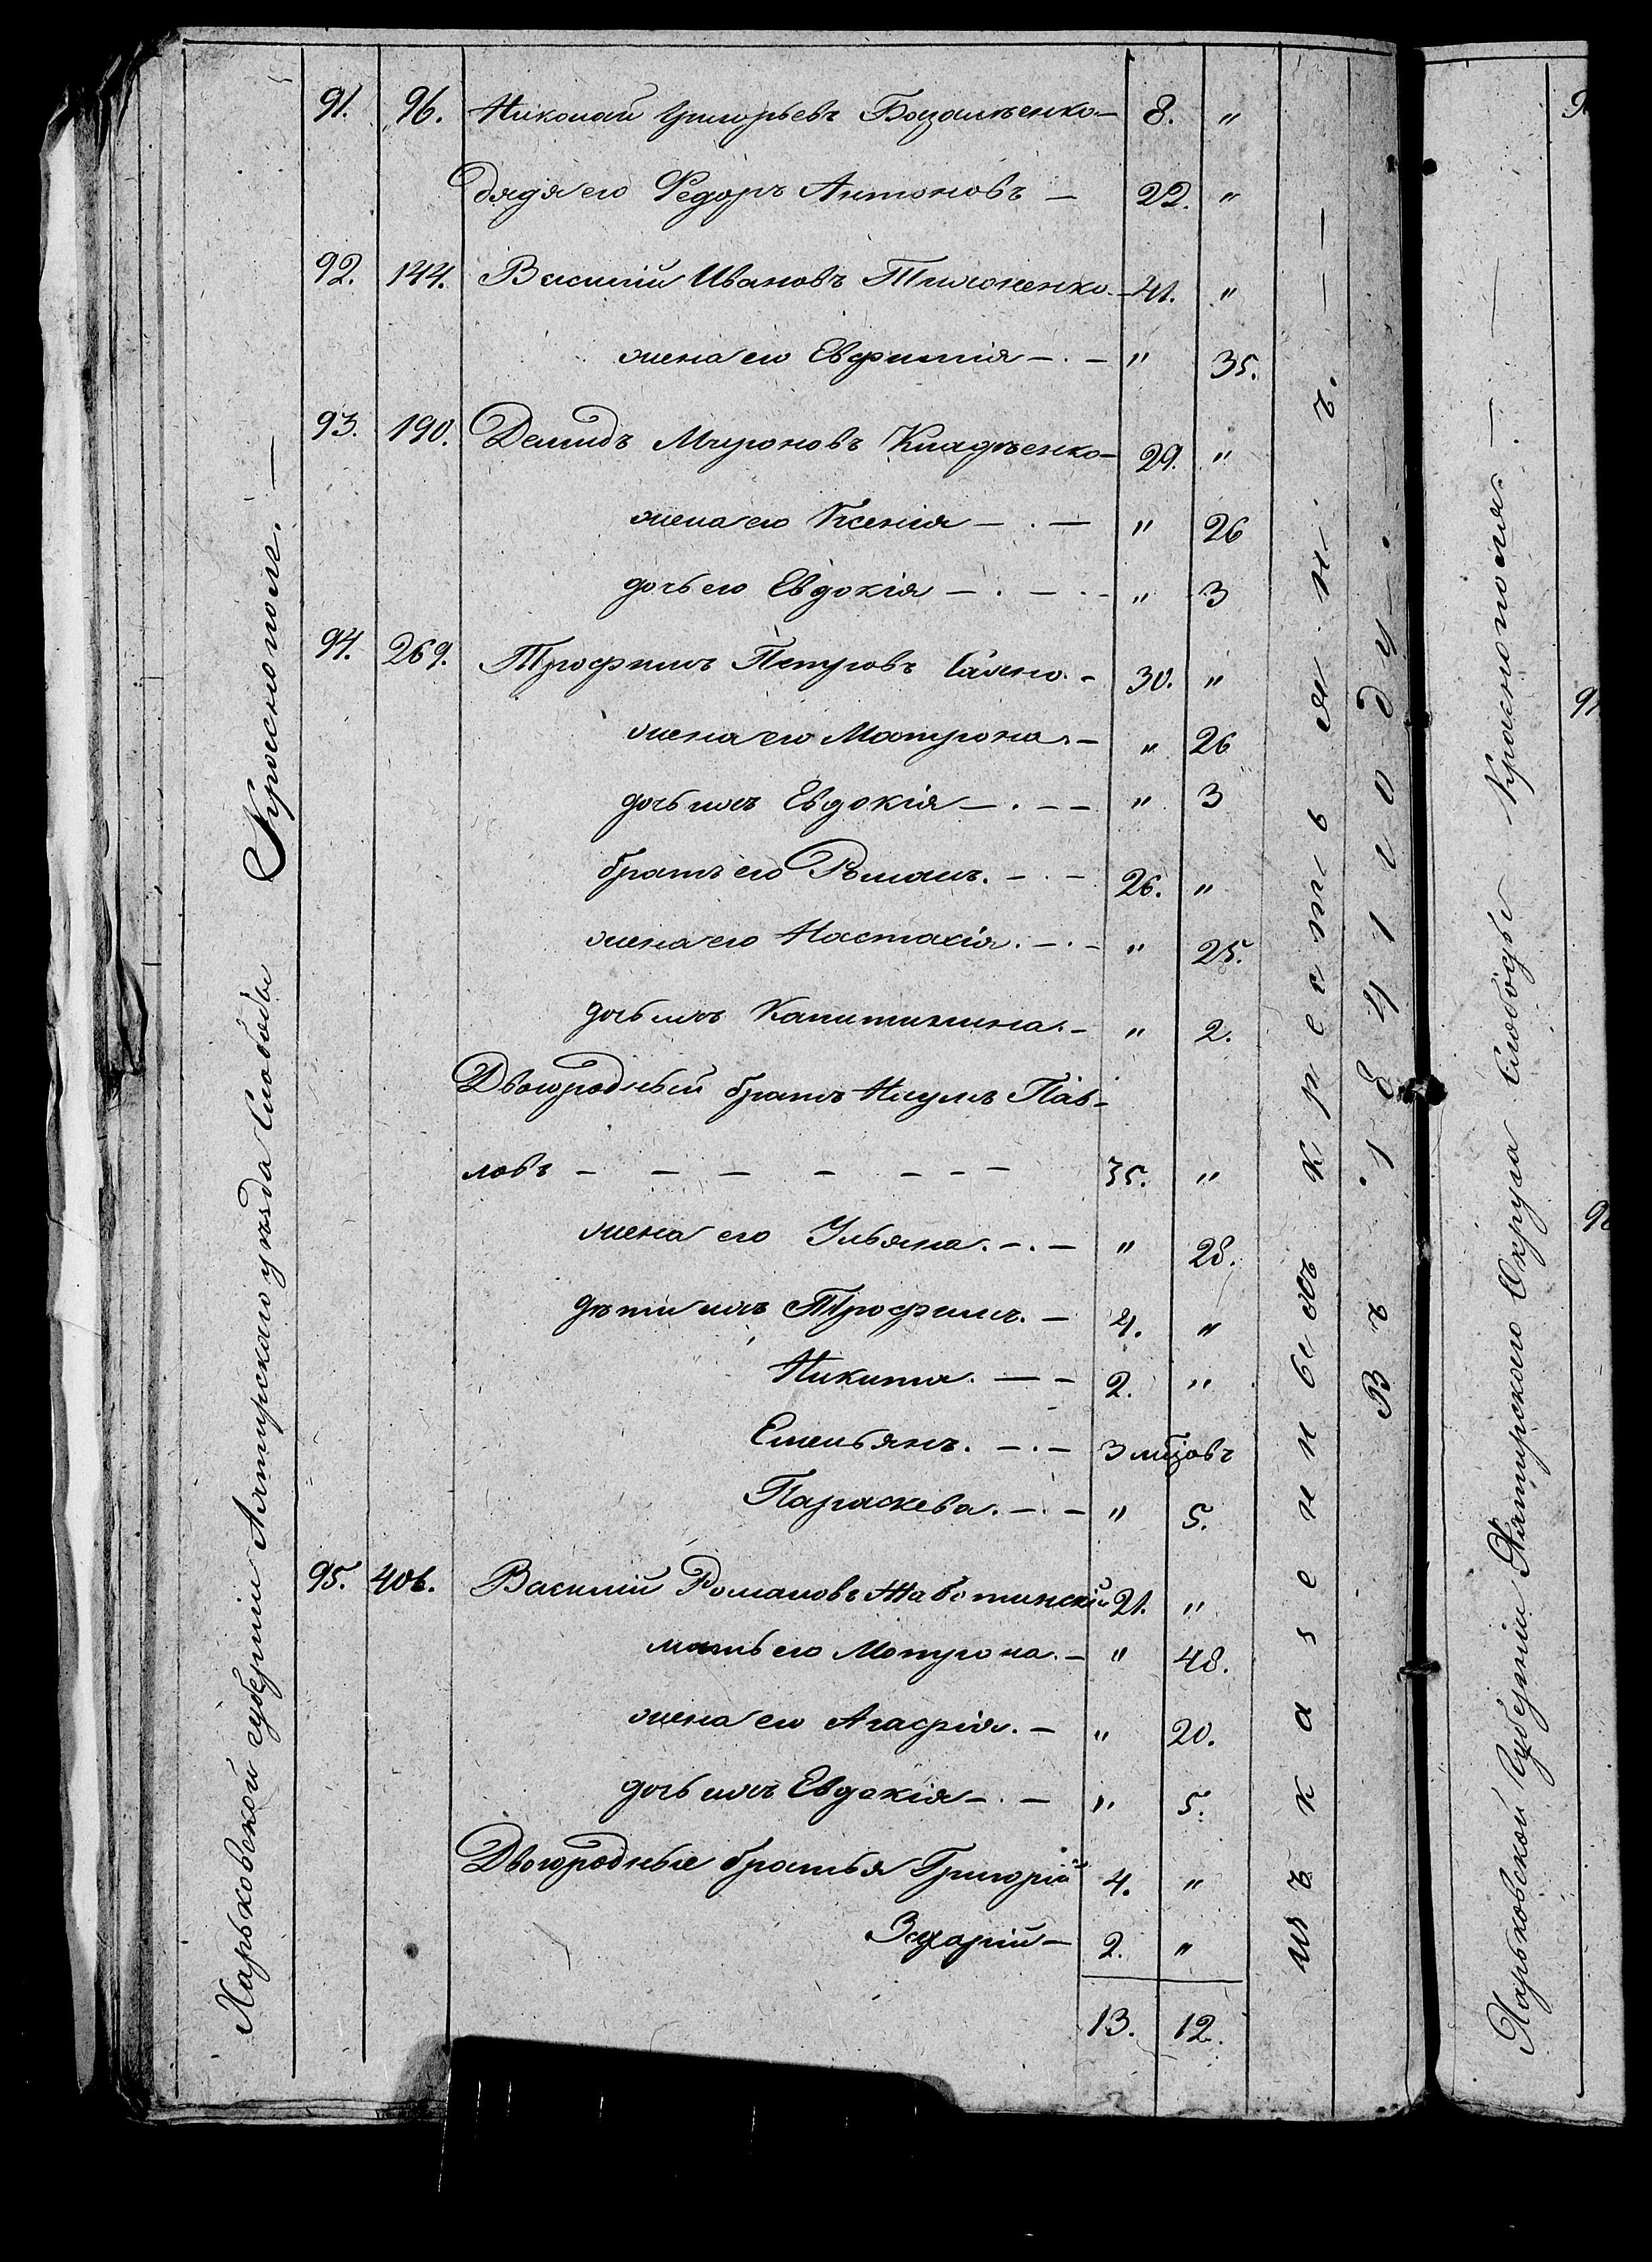 Харьковской губерніи Ахтырскаго уѣзда Слободы Краснополе. —
91. 96. Николай Григорьевъ — 8. "
дядя его Федоръ Антоновъ — 22. "
92. 144. Василій Ивановъ Тимоненко — 41. "
жена его Евфимія — . — " 35.
93. 190. Демидъ Мироновъ — 29. "
жена его Ксенія — . — " 26
дочь его Евдокія — . — . - " 3
94. 269. Трофимъ Петровъ - 30. "
жена его Матрона. — " 26
дочь ихъ Евдокія — . — — " 3
братъ его Романъ. — . — 26. "
жена его Настасія. — . — " 25.
дочь ихъ Капитинина. — " 2.
Двоюродный братъ Наумъ Пав-
ловъ — — — — — — — 35. "
жена его Ульяна. — . — " 28.
дѣти ихъ Трофимъ. — 4. "
Никита. — — 2. "
Емельянъ. — . — 3 мцовъ
Параскева. — . — " 5.
95. 406. Василій Романовъ Жаботинскій 21. "
мать его Мотрона. — " 48.
жена его Агафія. — " 20.
дочь ихъ Евдокія — . — " 5.
Двоюродные братья Григорій 4. "
Захарій — 2. "
13. 12.
казенное крестьянъ.
Въ году.
Харьковской Губерніи Ахтырскаго Округа Слободы Краснополя. —